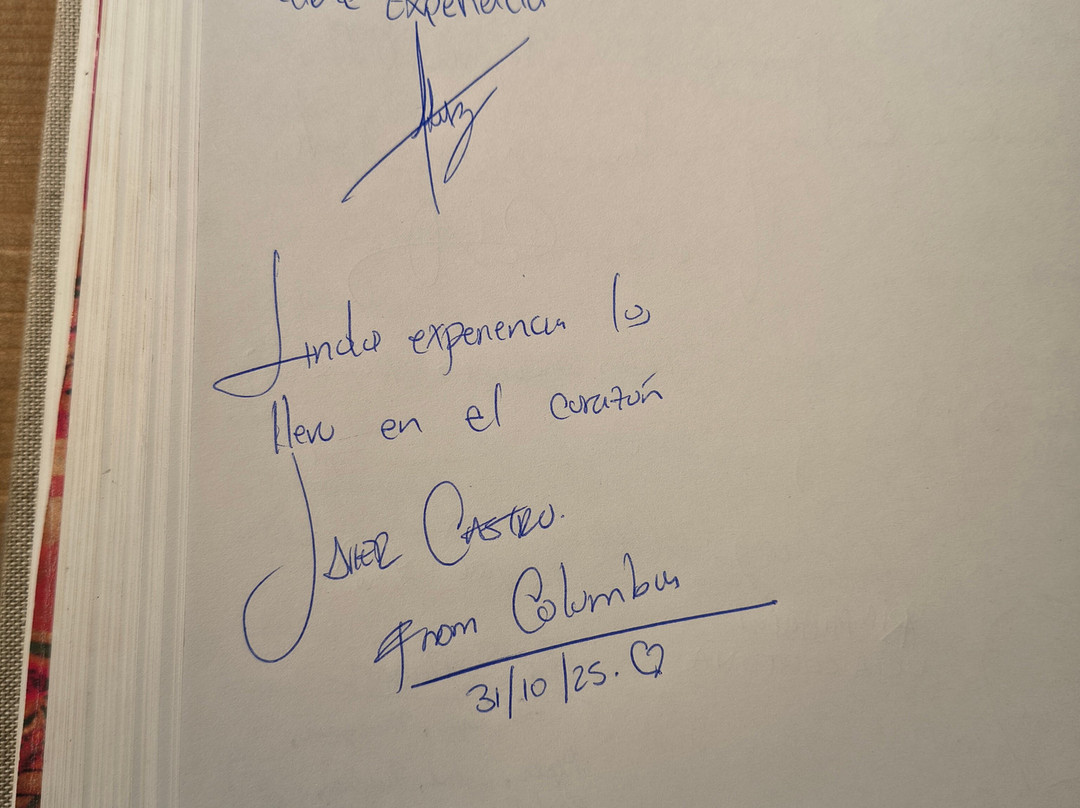 experiencia
Linda experiencia los
llevo en el corazón
Javier Castro.
From Columbus
31/10/25. ♡